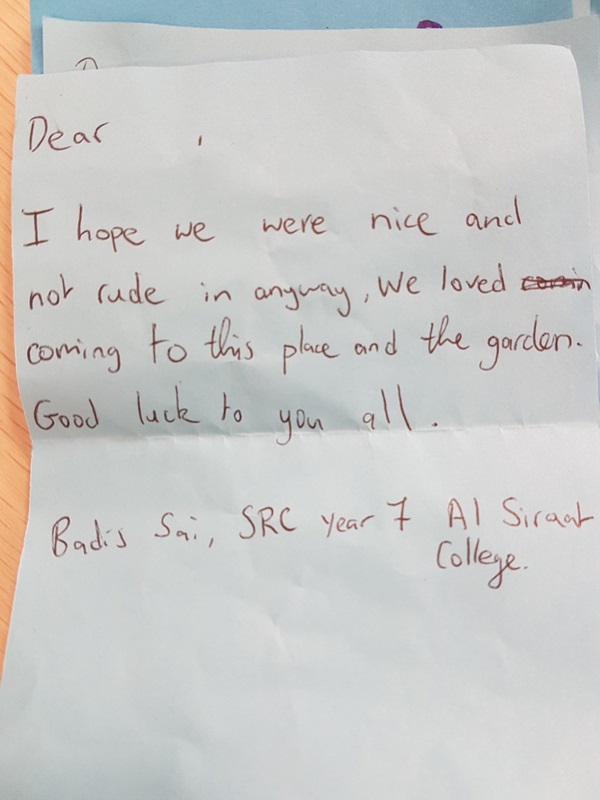 Dear ,
I hope we were nice and
not rude in anyway, We loved
coming to this place and the garden.
Good luck to you all.
Badis Sai, SRC year 7 Al Siraat
College.